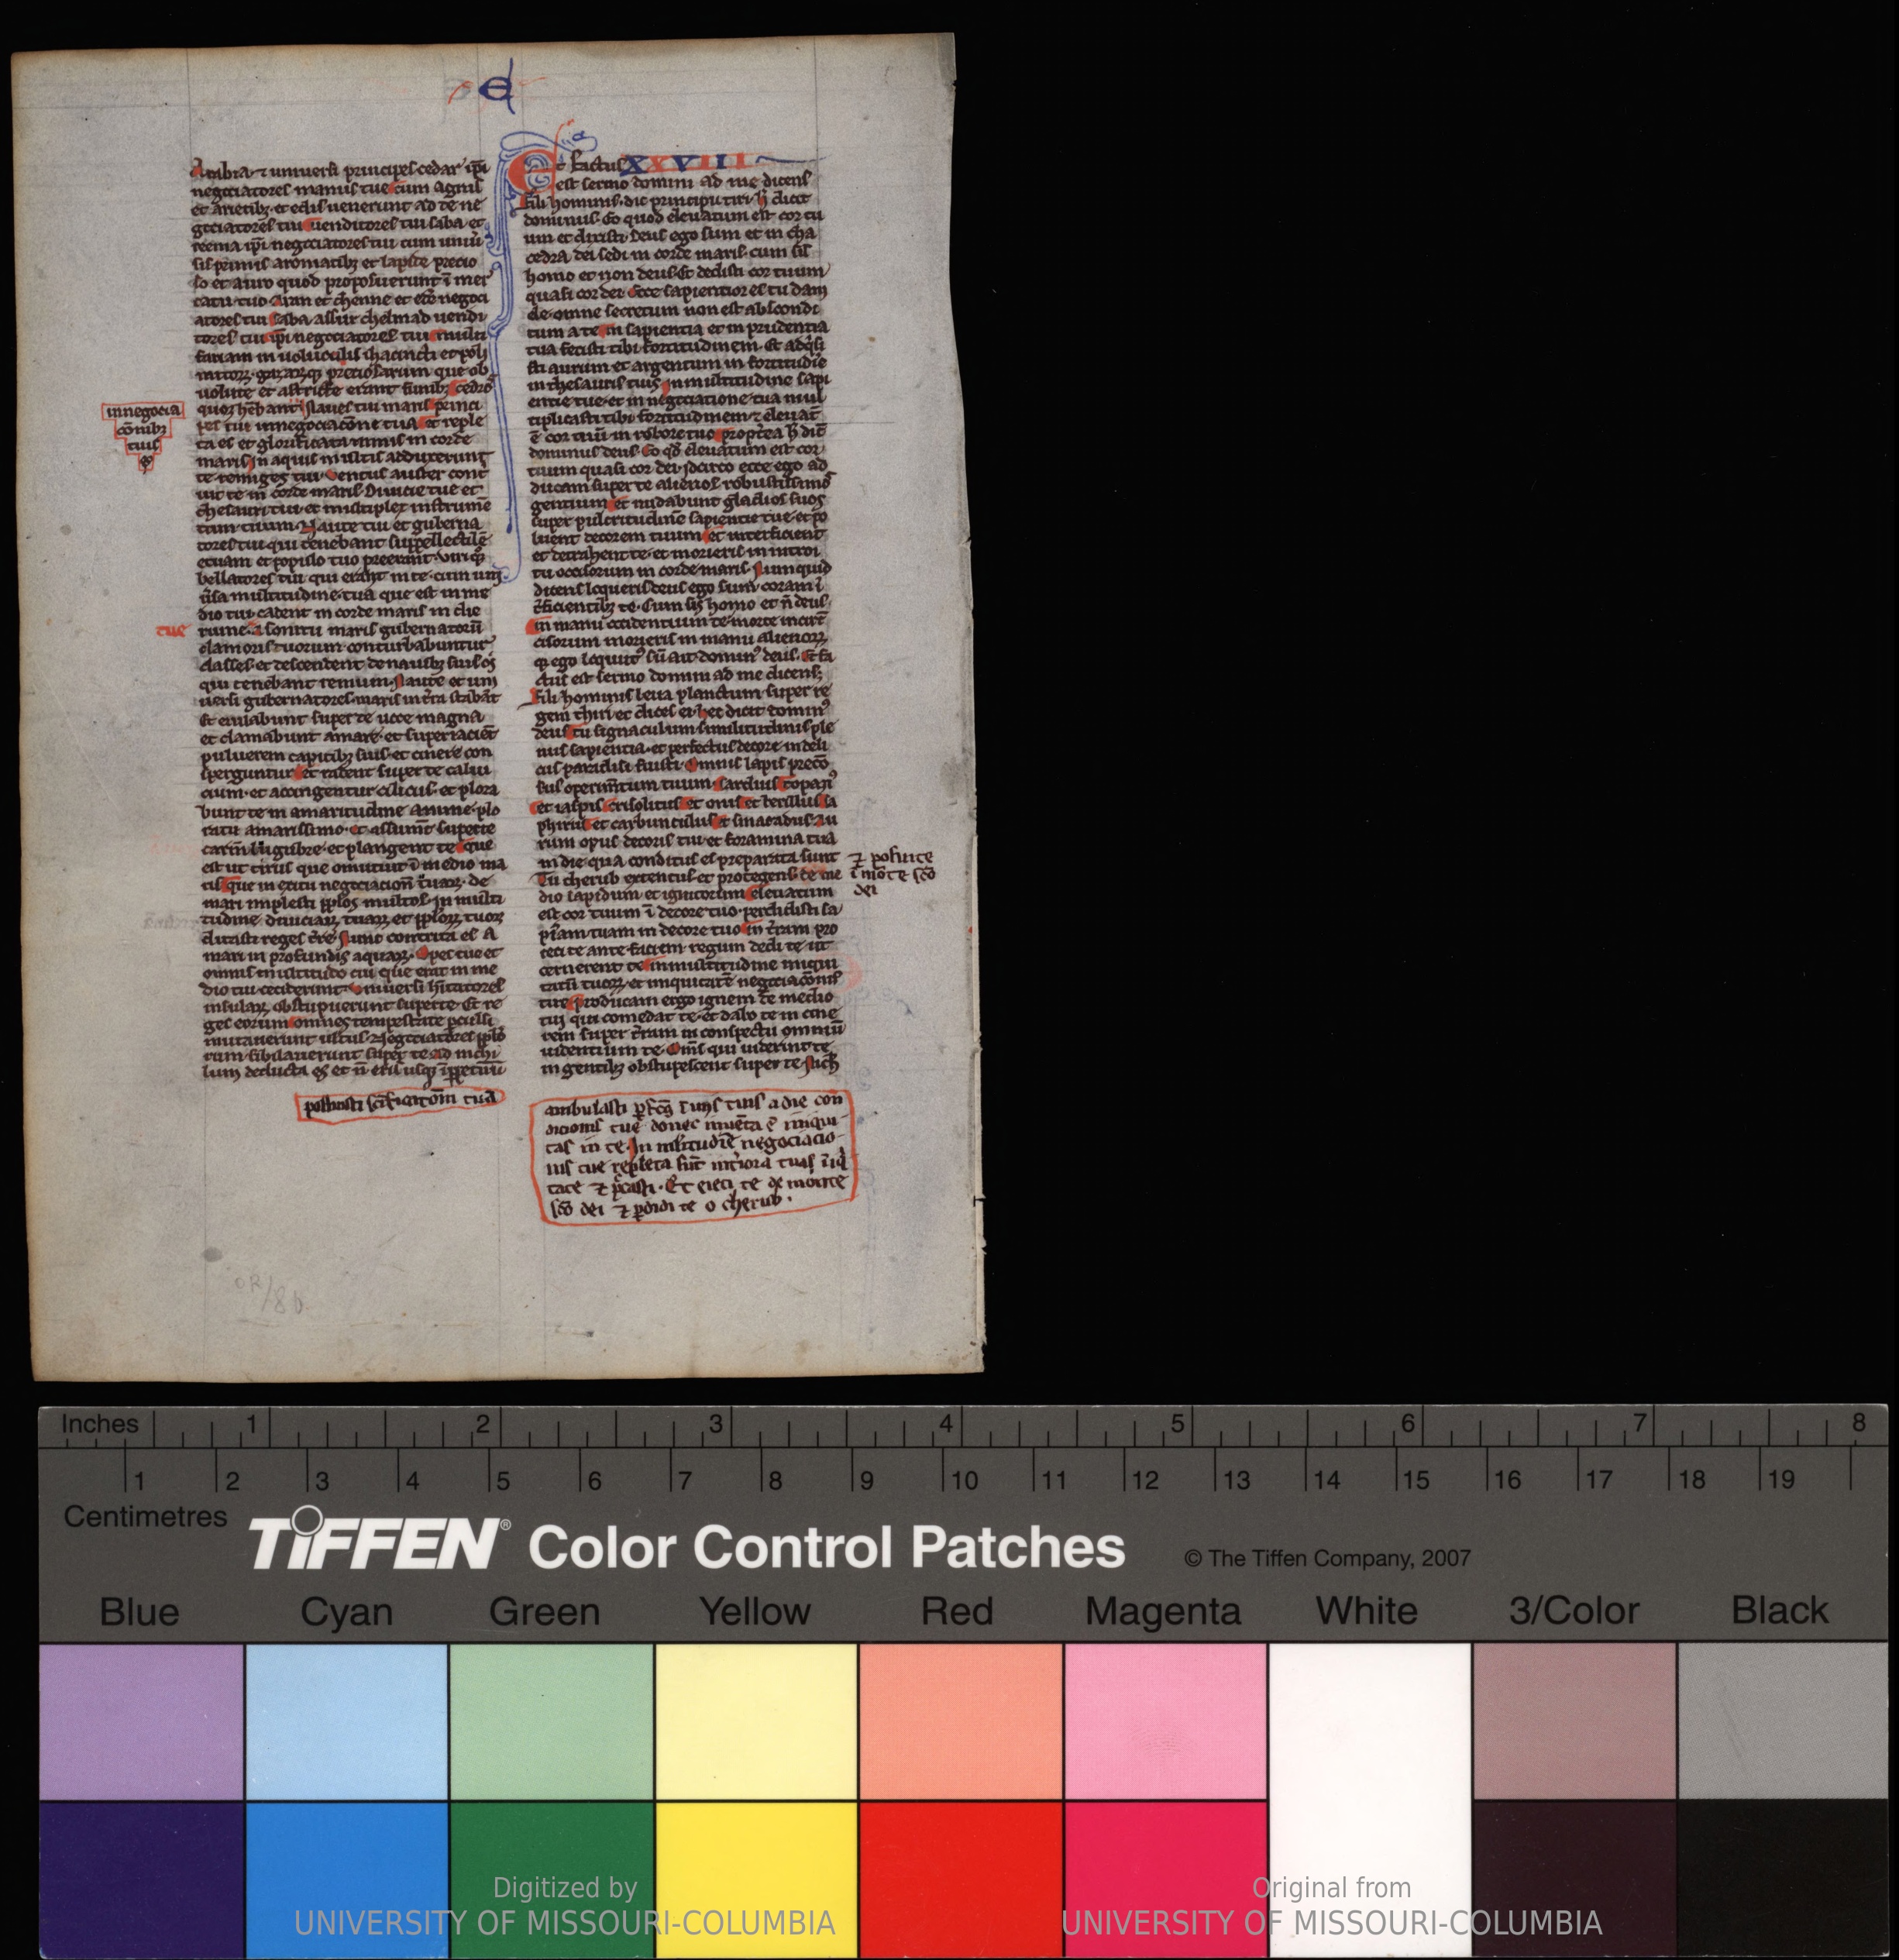 e
Arabia ⁊ uniuersi principes cedar ip̄i
negociatores manus tue cum agnis
et arietibꝫ et edis uenerunt ad te ne
gociatores tui uenditores tui saba et
reema ip̄i negociatores tui cum uniū
sis primis aromatibꝫ et lapide precio
so et auro quod proposuerunt ī mer
catu tuo Aran et chenne et eden negoci
atores tui saba assur chelmad uendi
tores tui ip̄i negociatores tui multi
fariam in uolucilis iacincti et poli
mitoꝝ gazaꝝqꝫ preciosarum que ob
uolute et astricte erant funibꝫ cedros
quoqꝫ hēbant Naues tui maris princi
pes tui innegociacōne tua et reple
ta es et glorificata nimis in corde
maris In aquis multis adduxerunt
te remiges tui Uentus auster cont
uit te in corde maris Diuicie tue et
thesauri tui et multiplex instrumē
tum tuum Naute tui et guberna
tores tui qui tenebant suppellectilē
etuam et populo tuo preerant uiri qꝫ
bellatores tui qui erant in te cum uni
ūsa multitudine tua que est in me
dio tui cadent in corde maris in die
ruine a sonitu maris gubernatorū
clamoris tuorum conturbabuntur
classes et descendent de nauibꝫ suis oēs
qui tenebant remum Naute et uni
uersi gubernatores maris in tr̄a stabūt
Et eiulabunt super te uoce magna
et clamabunt amare et superiacient
puluerem capitibꝫ suis et cinere con
sperguntur et radent super te calui
cium et accingentur cilicus et plora
bunt te in amaritudine anime plo
ratu amarissimo et assumēt super te
carm̄ lugubre et plangent te que
est ut tirus que omutuit ī medio ma
ris que in exitu negociacion̄ tuaꝝ de
mari implesti pp̄los multos in multi
tudine diuiciaꝝ tuaꝝ et pp̄loꝝ tuoꝝ
ditasti reges tr̄e Nunc contrita es a
mari in profundis aquaꝝ Opes tue et
omnis multitudo tui que erat in me
dio tui ceciderunt Uniuersi h̄itatores
insulaꝝ obstupuerunt super te Et re
ges eorum omnes tempestate pculsi
mutauerunt uultus Negociatores pp̄lo
rum sibilauerunt super te ad nichi
lum deducta es et n̄ eris usqꝫ ī ppetuū
innegocia
cōnibꝫ
tuis
tue
polluisti sc̄ificatōm tuā
XXVIII
Et factus
est sermo domini ad me dicens
Fili hominis dic principi tiri h̄ dicit
dominus Eo quod eleuatum est cor tu
um et dixisti Deus ego sum et in cha
cedra dei sedi in corde maris cum sis
homo et non deus Et dedisti cor tuum
quasi cor dei Ecce sapientior es tu dani
ele omne secretum non est abscondi
tum a te In sapientia et in prudentia
tua fecisti tibi fortitudinem Et adqisi
sti aurum et argentum in fortitudīe
in thesauris tuis In multitudine sapi
entie tue et in negociacione tua mul
tiplicasti tibi fortitudinem ⁊ eleuat̄
ē cor tuū in robore tuo propterea h̄ dic̄
dominus deus Eo qd̄ eleuatum est cor
tuum quasi cor dei Idcirco ecce ego ad
ducam super te alienos robustissimos
gentium et nudabunt gladios suos
super pulcritudinē sapientie tue et po
luent decorem tuum et interficient
et detrahent te et morieris in interi
tu occisorum in corde maris Numquid
dicens loqueris deus ego sum coram ī
t̄ficientibꝫ te Cum sis homo et n̄ deus
in manu occidentium te morte incir̄
cisorum morieris in manu alienoꝝ
qꝫ ego locutus sū ait dominus deus Et fa
ctus est sermo domini ad me dicens
Fili hominis leua planctum super re
gem thiri et dices ei hec dicit dominus
deus tu signaculum similitudinis ple
nus sapientia et perfectus decore in deli
ciis paradisi fuisti Omnis lapis precō
sus operim̄tum tuum sardius topazi
et iaspis crisolitus et onix et berillus sa
phirus et carbunculus et smaradus Au
rum opus decoris tui et foramina tua
in die qua conditus es preparata sunt
Tu cherub extentus et protegens de me
dio lapidum et ignitorum eleuatum
est cor tuum ī decore tuo perdidisti sa
piām tuam in decore tuo in tr̄am pro
ieci te ante faciem regum dedi te ut
cernerent te in multitudine iniqui
tatū tuoꝝ et iniquitate negociacōnis
tue Producam ergo ignem de medio
tui qui comedat te et dabo te in cine
rem super tr̄am in conspectu omniū
uidentium te Om̄s qui uiderint te
in gentibꝫ obstupescent super te Nich̄
⁊ posui te
ī mōte sc̄o
dei
ambulasti pfc̄s ī uiis tuis a die con
dicionis tue donec inuēta ē iniqui
tas in te In multitudīe negociacio
nis tue repleta sūt int̄iora tua īiq̄
tate ⁊ pcasti Et eieci te de monte
sc̄o dei ⁊ pdidi te o cherub
OR/86
Inches 1 2 3 4 5 6 7 8
1 2 3 4 5 6 7 8 9 10 11 12 13 14 15 16 17 18 19
Centimetres
TIFFEN® Color Control Patches © The Tiffen Company, 2007
Blue Cyan Green Yellow Red Magenta White 3/Color Black
Digitized by
UNIVERSITY OF MISSOURI-COLUMBIA
Original from
UNIVERSITY OF MISSOURI-COLUMBIA